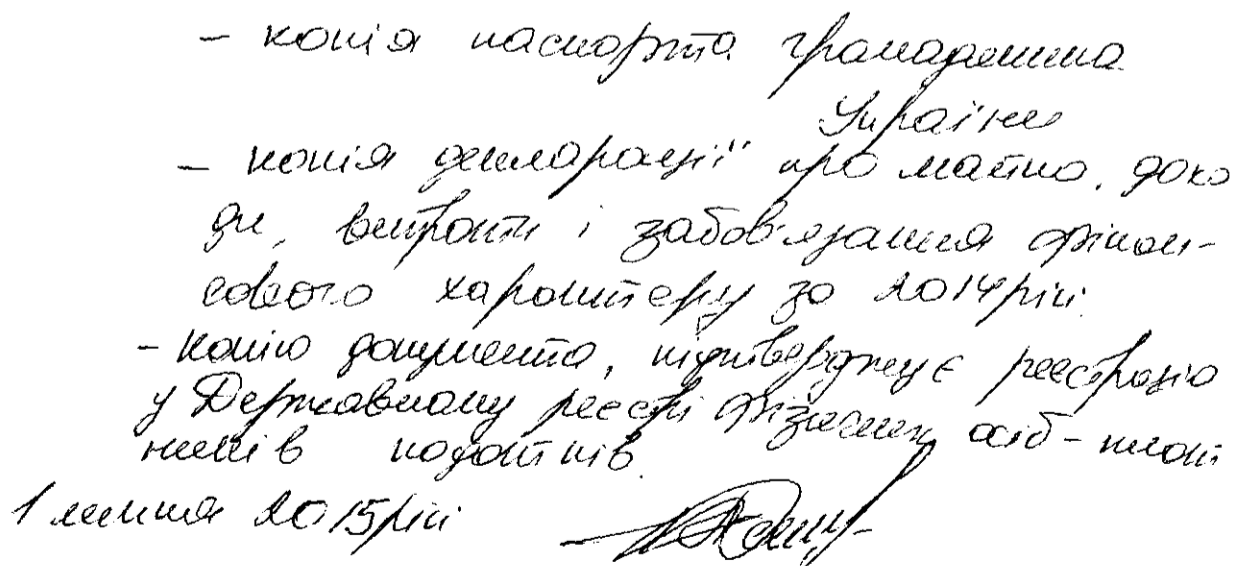 - копія паспорта громадянина
України
- копія декларації про майно, дохо
ди, витрати і забов'язання фінан-
сового характеру за 2014 рік
- копію документа, підтверджує реєстрацію
у Державному реєстрі фізичних осіб - плат
ників податків.
1 липня 2015 рік